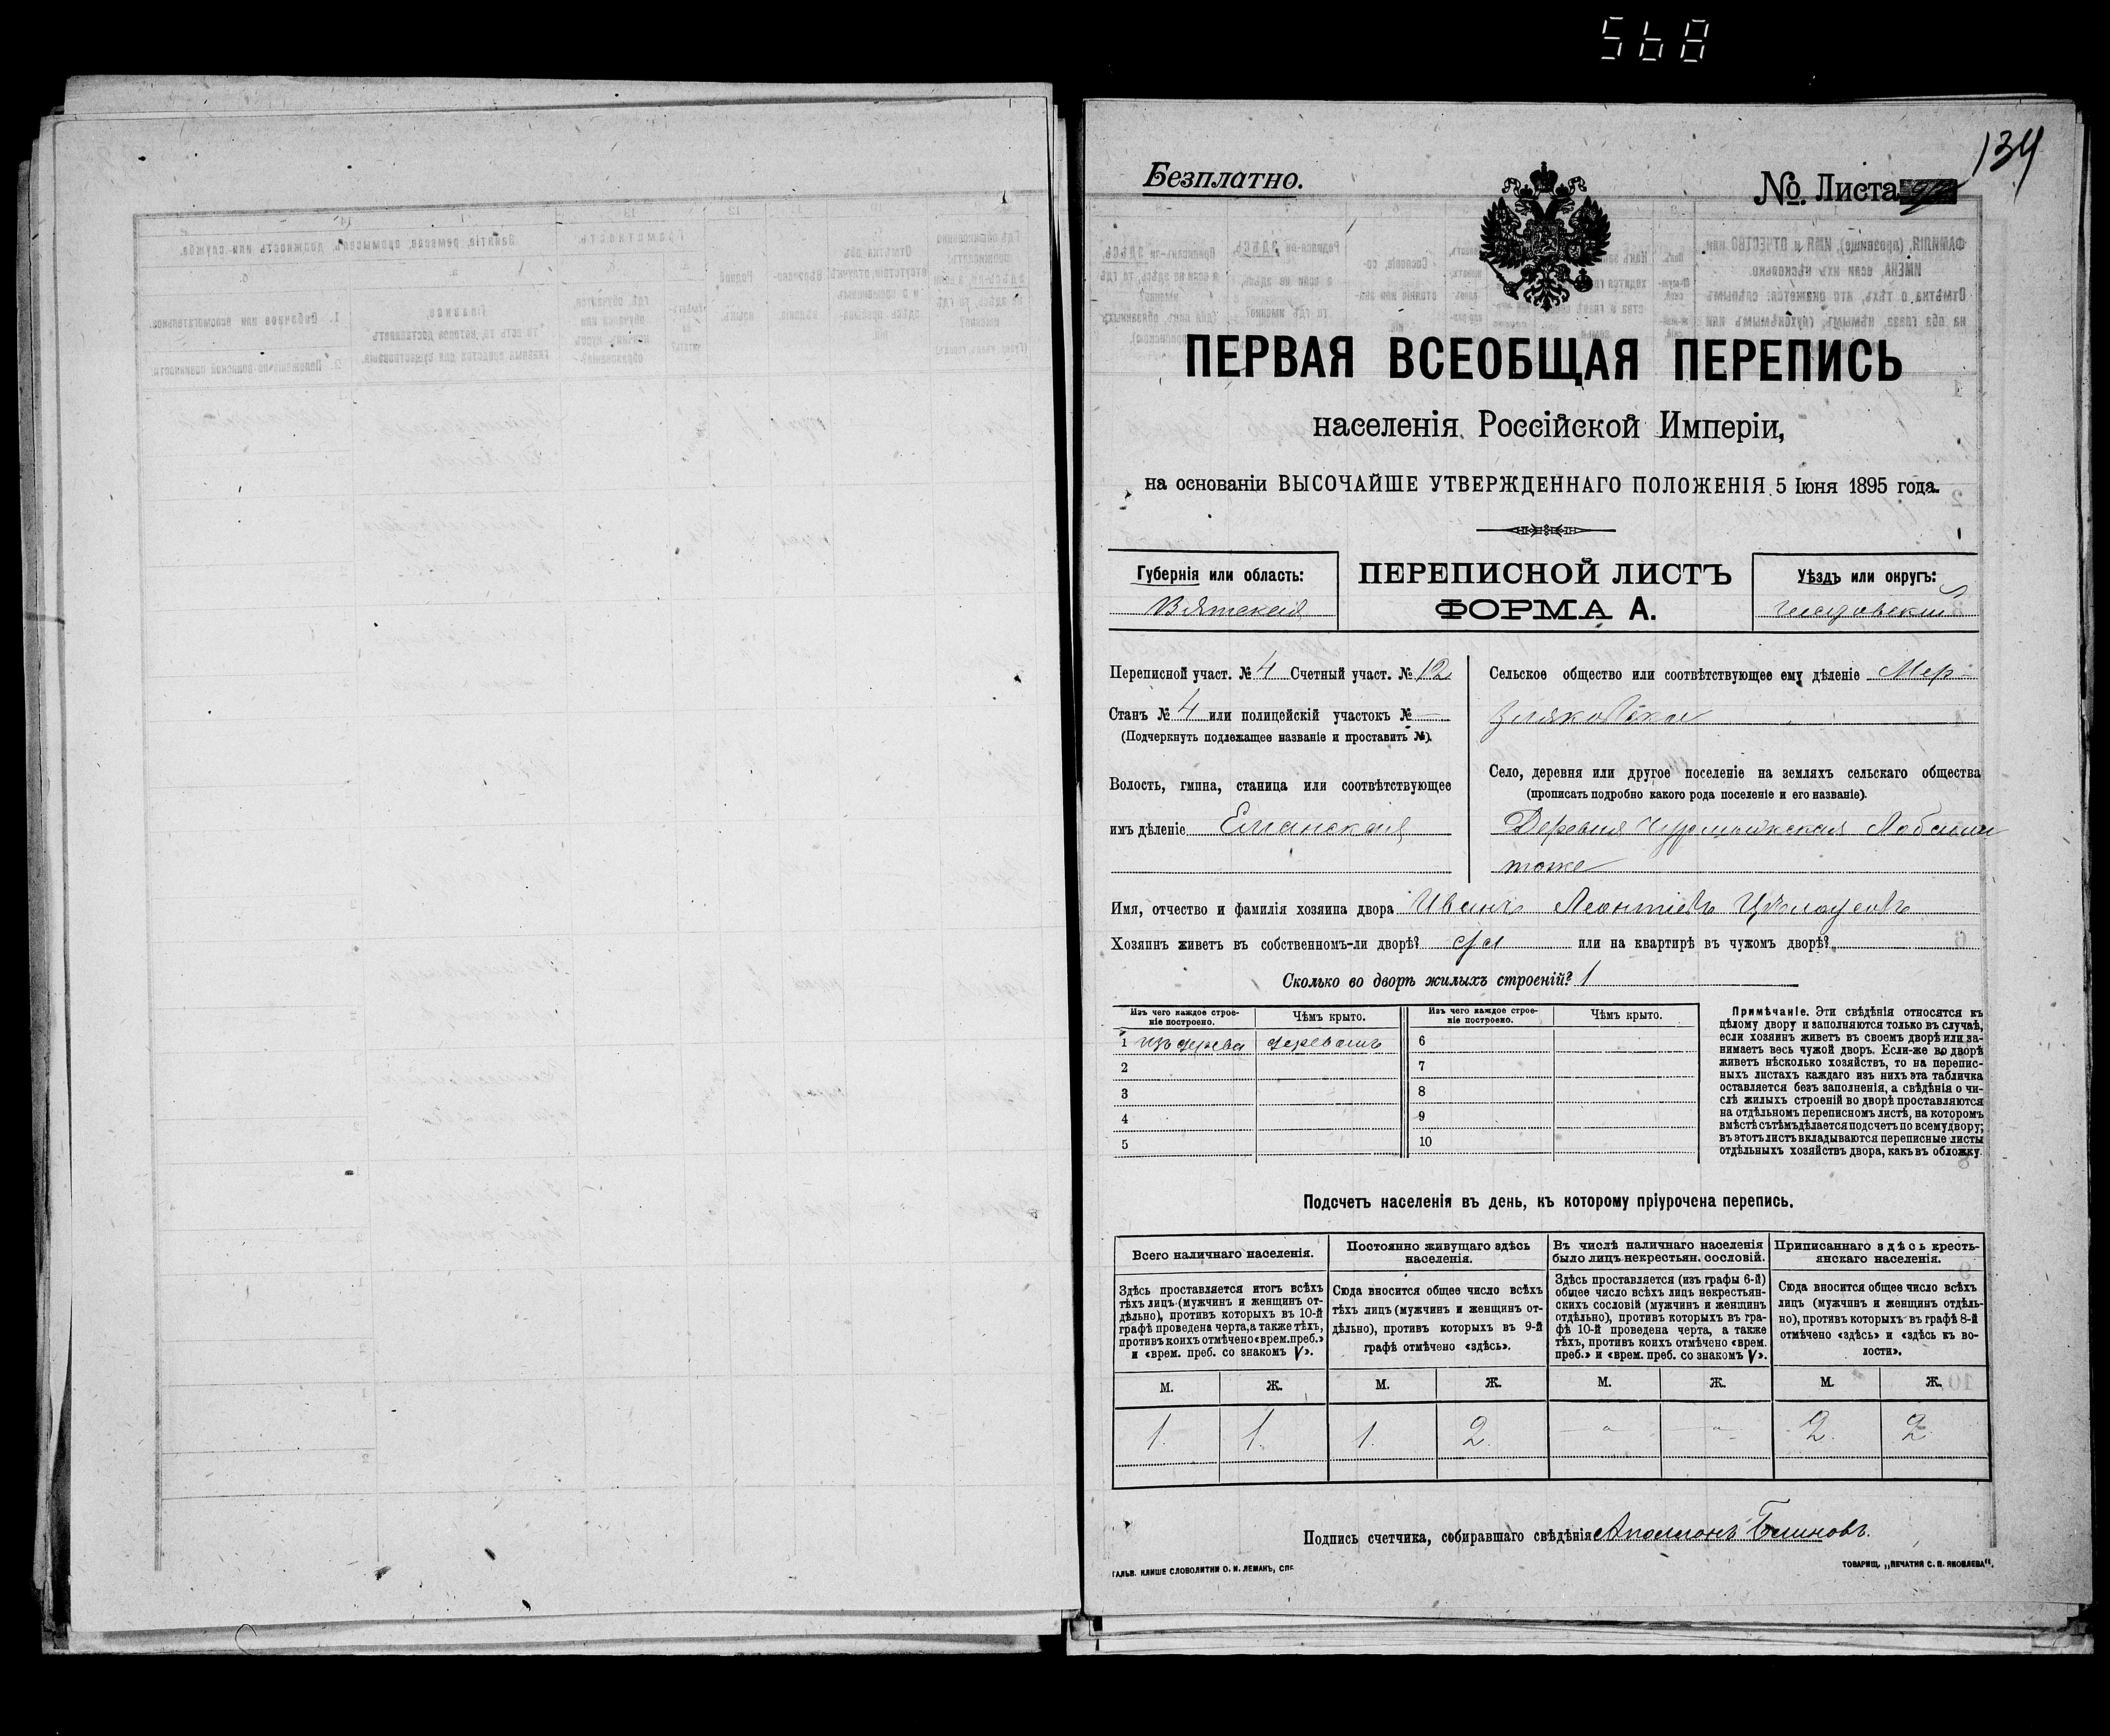 568
134
Безплатно.
№. Листа
ПЕРВАЯ ВСЕОБЩАЯ ПЕРЕПИСЬ
населенія Россійской Имперіи,
на основаніи ВЫСОЧАЙШЕ УТВЕРЖДЕННАГО ПОЛОЖЕНІЯ 5 Іюня 1895 года.
Губернія или область:
Вятская
ПЕРЕПИСНОЙ ЛИСТЪ
ФОРМА А.
Уѣздъ или округъ:
Глазовскій
Переписной участ. № 4 Счетный участ. № 12
Станъ № 4 или полицейскій участокъ № —
(Подчеркнуть подлежащее названіе и проставить №).
Волость, гмина, станица или соотвѣтствующее
имъ дѣленіе Еланская
Сельское общество или соотвѣтствующее ему дѣленіе Мер-
зляковское
Село, деревня или другое поселеніе на земляхъ сельскаго общества
(прописать подробно какого рода поселеніе и его названіе).
Деревня
тоже
Имя, отчество и фамилія хозяина двора Иванъ Леонтіевъ
Хозяинъ живетъ въ собственномъ-ли дворѣ? да или на квартирѣ въ чужомъ дворѣ?
Сколько во дворѣ жилыхъ строеній? 1
Изъ чего каждое строе-
ніе построено.
Чѣмъ крыто.
Изъ чего каждое строе-
ніе построено.
Чѣмъ крыто.
1 изъ дерева деревомъ 6
2 7
3 8
4 9
5 10
Примѣчаніе. Эти свѣдѣнія относятся къ
цѣлому двору и заполняются только въ случаѣ,
если хозяинъ живетъ въ своемъ дворѣ или за-
нимаетъ весь чужой дворъ. Если-же во дворѣ
живетъ нѣсколько хозяйствъ, то на перепис-
ныхъ листахъ каждаго изъ нихъ эта табличка
оставляется безъ заполненія, а свѣдѣнія о чи-
слѣ жилыхъ строеній во дворѣ проставляются
на отдѣльномъ переписномъ листѣ, на которомъ
вмѣстѣ съ тѣмъ дѣлается подсчетъ по всему двору;
въ этотъ листъ вкладываются переписные листы
отдѣльныхъ хозяйствъ двора, какъ въ обложку.
Подсчетъ населенія въ день, къ которому пріурочена перепись.
Всего наличнаго населенія.
Здѣсь проставляется итогъ всѣхъ
тѣхъ лицъ (мужчинъ и женщинъ от-
дѣльно), противъ которыхъ въ 10-й
графѣ проведена черта, а также тѣхъ,
противъ коихъ отмѣчено «врем. преб.»
и «врем. преб. со знакомъ V».
Постоянно живущаго здѣсь
населенія.
Сюда вносится общее число всѣхъ
тѣхъ лицъ (мужчинъ и женщинъ от-
дѣльно), противъ которыхъ въ 9-й
графѣ отмѣчено «здѣсь».
Въ числѣ наличнаго населенія
было лицъ некрестьян. сословій.
Здѣсь проставляется (изъ графы 6-й)
общее число всѣхъ лицъ некрестьян-
скихъ сословій (мужчинъ и женщинъ
отдѣльно), противъ которыхъ въ гра-
фѣ 10-й проведена черта, а также
тѣхъ, противъ коихъ отмѣчено «врем.
преб.» и «врем. преб. со знакомъ V».
Приписаннаго здѣсь кресть-
янскаго населенія.
Сюда вносится общее число всѣхъ
лицъ (мужчинъ и женщинъ отдѣль-
но), противъ которыхъ въ графѣ 8-й
отмѣчено «здѣсь» и «здѣсь къ во-
лости».
М. Ж. М. Ж. М. Ж. М. Ж.
1. 1. 1. 2. — „ — — „ — 2. 2.
Подпись счетчика, собиравшаго свѣдѣнія Аполлонъ Блиновъ.
ГАЛЬВ. КЛИШЕ СЛОВОЛИТНИ О. И. ЛЕМАНЪ, СПБ.
ТОВАРИЩ. „ПЕЧАТНЯ С. П. ЯКОВЛЕВА“.